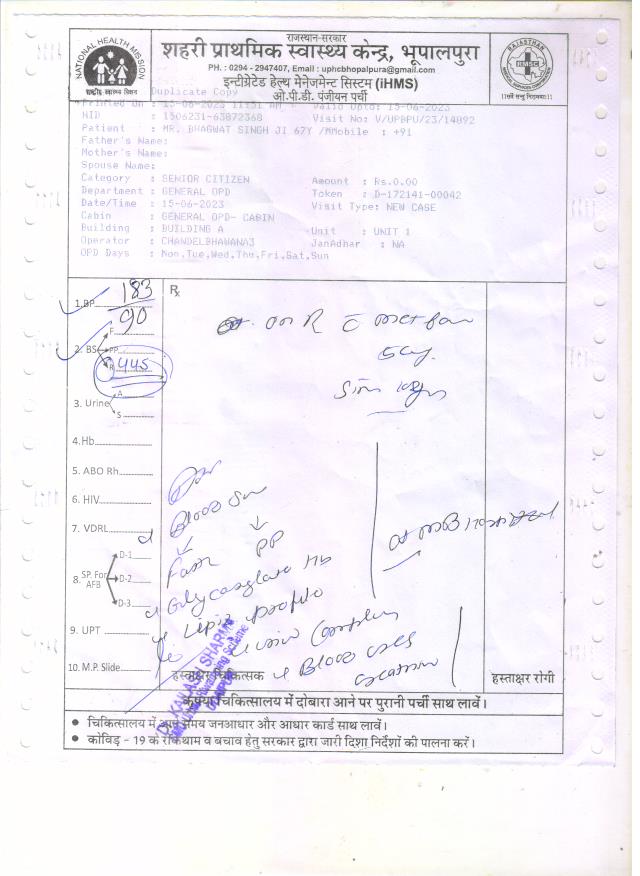 राजस्थान-सरकार
शहरी प्राथमिक स्वास्थ्य केन्द्र, भूपालपुरा
PH. : 0294 - 2947407, Email : uphcbhopalpura@gmail.com
इन्टीग्रेटेड हेल्थ मेनेजमेन्ट सिस्टम (iHMS)
ओ.पी.डी. पंजीयन पर्ची
NATIONAL HEALTH MISSION
राष्ट्रीय स्वास्थ्य मिशन
RAJASTHAN
RMSC
Duplicate Copy
Printed On : 15-06-2023 11:51 AM Valid Upto: 15-06-2023
NID : 1506231-63872368 Visit No: V/UPBPU/23/14892
Patient : MR. BHAGWAT SINGH JI 67Y /MMobile : +91
Father's Name:
Mother's Name:
Spouse Name:
Category : SENIOR CITIZEN Amount : Rs.0.00
Department : GENERAL OPD Token : D-172141-00042
Date/Time : 15-06-2023 Visit Type: NEW CASE
Cabin : GENERAL OPD- CABIN
Building : BUILDING A Unit : UNIT 1
Operator : CHANDELBHAWANA3 JanAdhar : NA
OPD Days : Mon,Tue,Wed,Thu,Fri,Sat,Sun
Rx
1.BP 183
90
2. BS F
PP
R 445
3. Urine A
S
4.Hb
5. ABO Rh
6. HIV
7. VDRL
8. SP. For AFB D-1
D-2
D-3
9. UPT
10. M.P. Slide
on R
Blood
PP
Hb
Lipid profile
Urine Complete
Blood
हस्ताक्षर चिकित्सक
हस्ताक्षर रोगी
कृपया चिकित्सालय में दोबारा आने पर पुरानी पर्ची साथ लावें।
चिकित्सालय में आते समय जनआधार और आधार कार्ड साथ लावें।
कोविड़ - 19 के रोकथाम व बचाव हेतु सरकार द्वारा जारी दिशा निर्देशों की पालना करें।